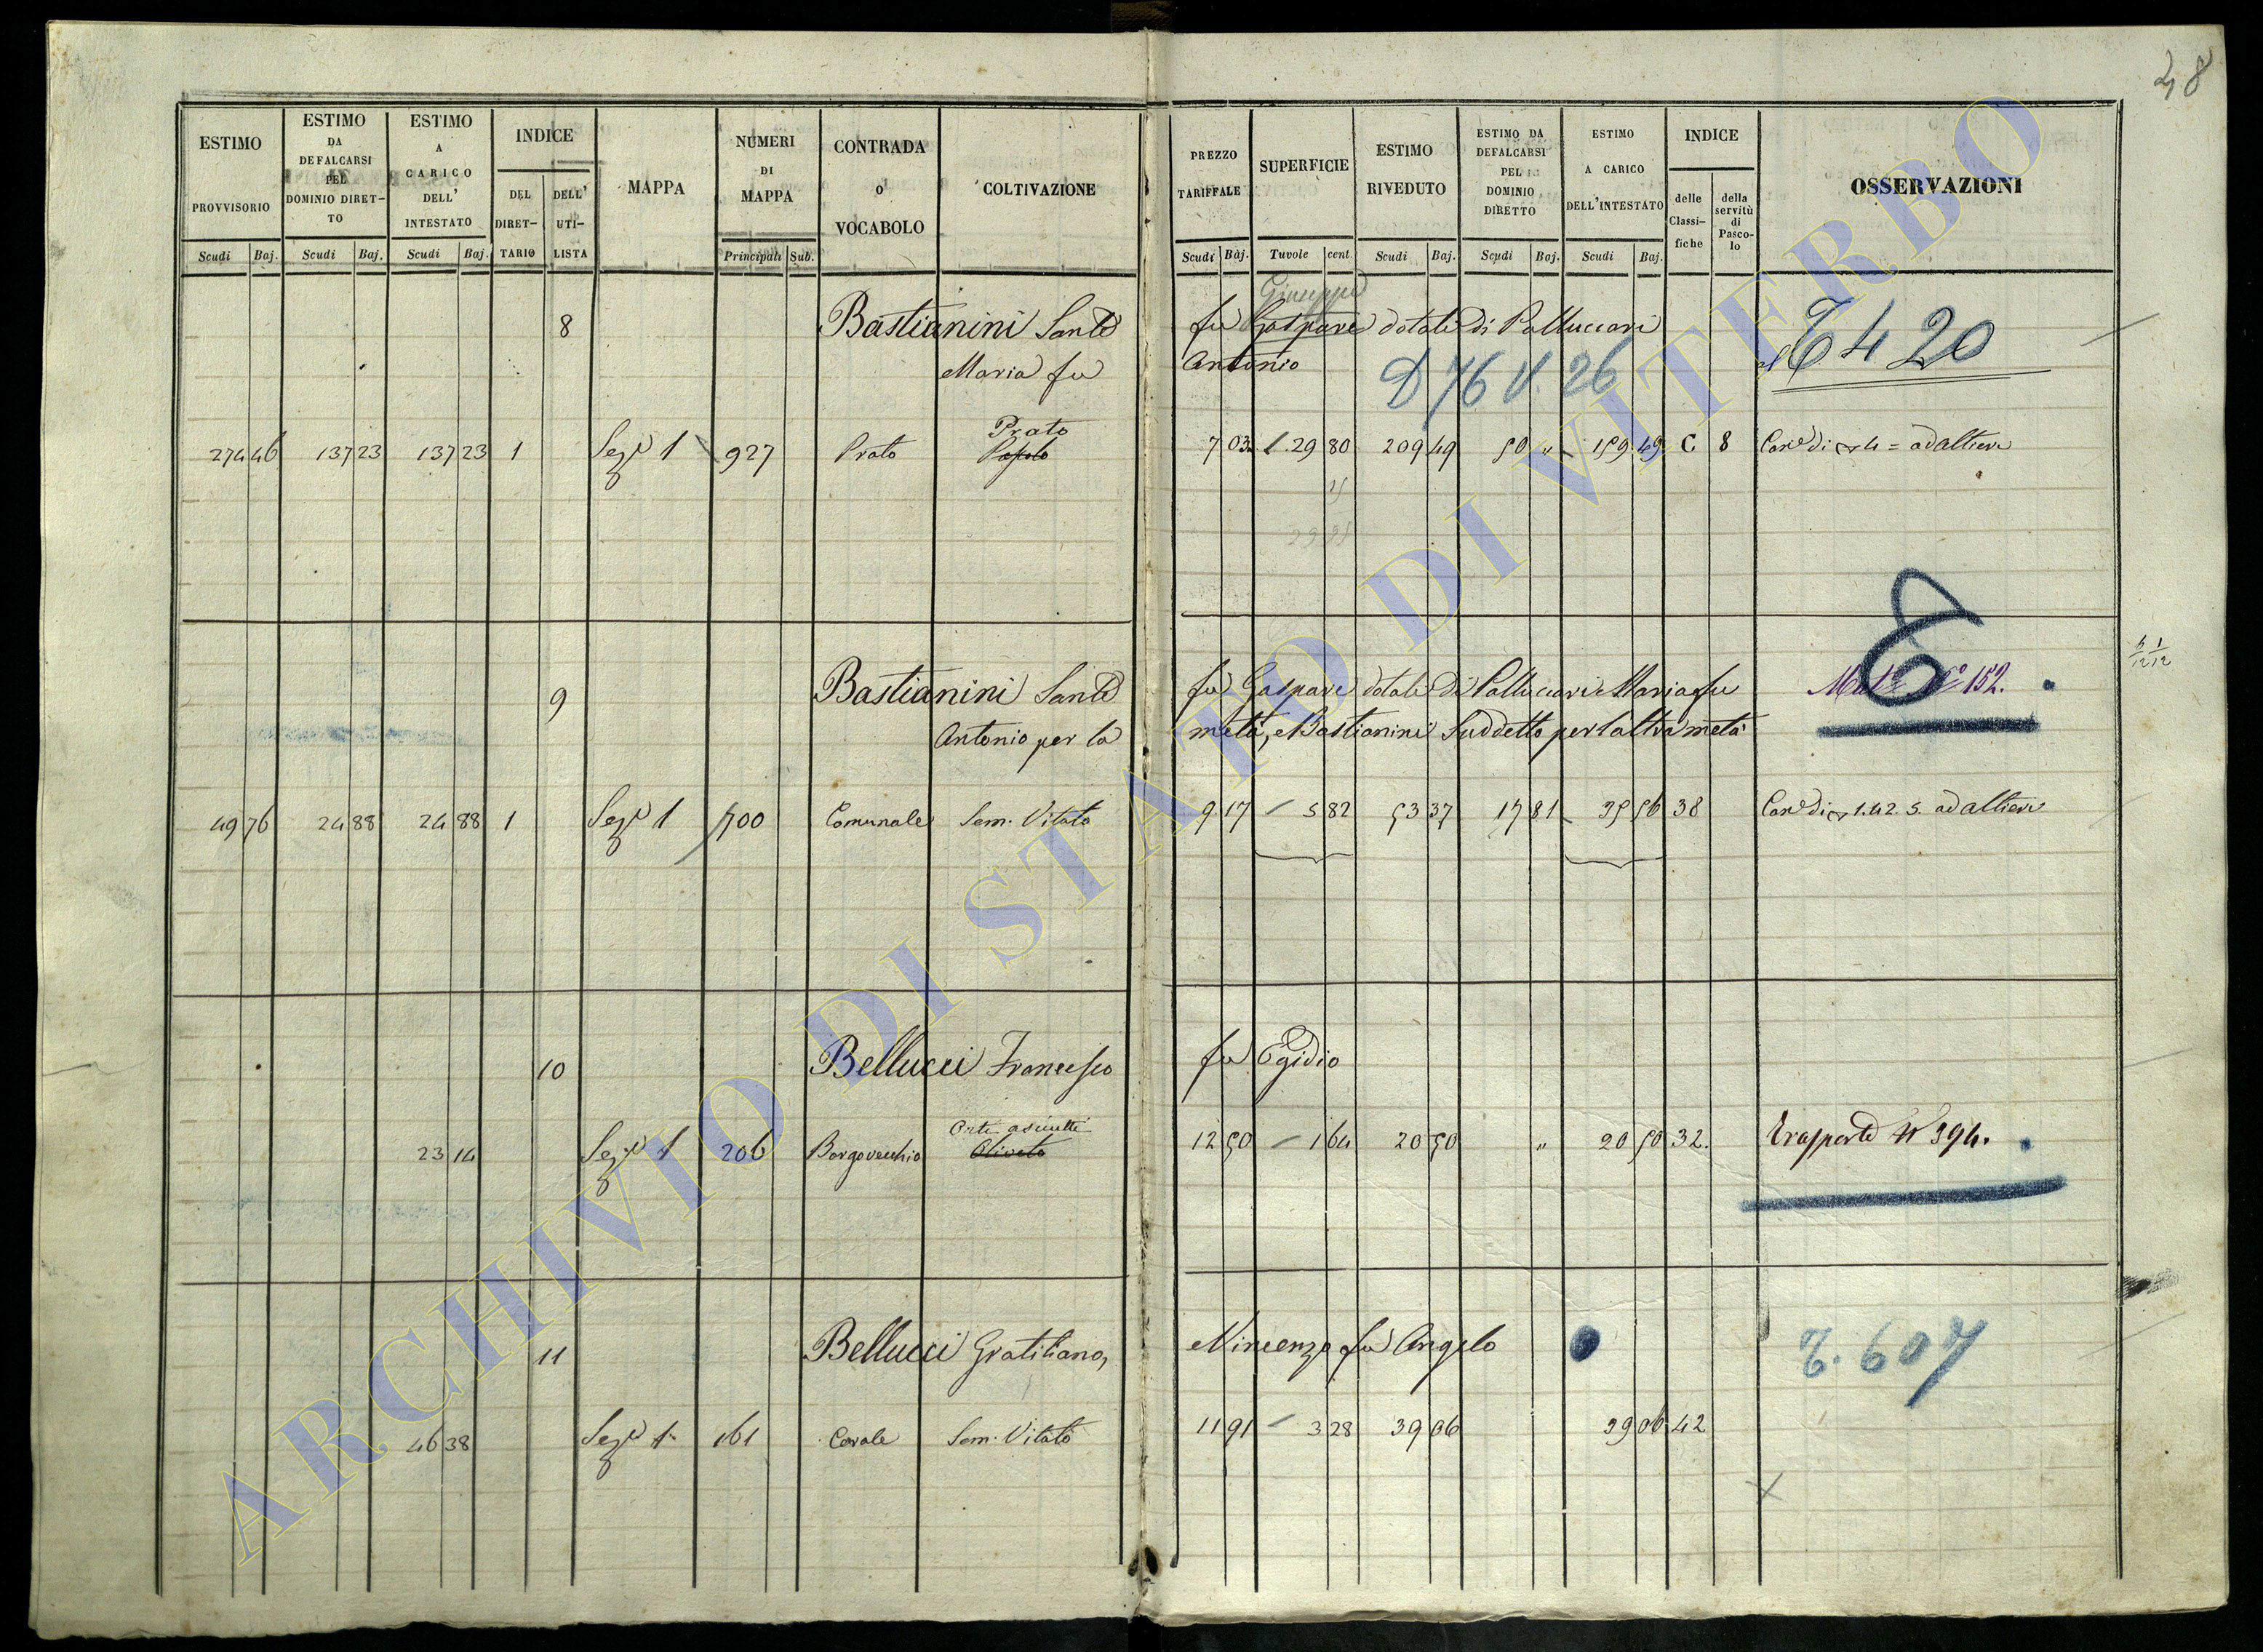 48
ESTIMO PROVVISORIO
ESTIMO DA DEFALCARSI PEL DOMINIO DIRETTO
ESTIMO A CARICO DELL' INTESTATO
INDICE
DEL DIRETTARIO
DELL' UTILISTA
MAPPA
NUMERI DI MAPPA
CONTRADA O VOCABOLO
COLTIVAZIONE
PREZZO TARIFFALE
SUPERFICIE
ESTIMO RIVEDUTO
ESTIMO DA DEFALCARSI PEL DOMINIO DIRETTO
ESTIMO A CARICO DELL'INTESTATO
INDICE
delle Classifiche
della servitù di Pascolo
OSSERVAZIONI
Scudi Baj. Scudi Baj. Scudi Baj. Principali Sub. Scudi Baj. Tavole cent. Scudi Baj. Scudi Baj. Scudi Baj.
Giuseppe
8 Bastianini Sante fu Gaspare dotale di Palluccari
Maria fu Antonio
D 76 V. 26
T 420
Prato
274 46 137 23 137 23 1 Sez.e 1 927 Prato 7 03 1. 29 80 209 49 50 " 159 49 C 8 ad Altieri
9 Bastianini Sante fu Gaspare dotale di Palluccari Maria fu
Antonio per la metà, e Bastianini Suddetto per l'altra metà
152.
49 76 24 88 24 88 1 Sez.e 1 700 Comunale Sem. Vitato 9 17 5 82 53 37 17 81 35 56 38 ad Altieri
10 Bellucci Francesco fu Egidio
Orto asciutto
23 14 Sez.e 1 206 Borgovecchio Oliveto 12 50 1 64 20 50 " 20 50 32. Trasporto N 394.
11 Bellucci Gratiliano, e Vincenzo fu Angelo
T. 607
46 38 Sez.e 1 161 Cavale Sem. Vitato 11 91 3 28 39 06 39 06 42
ARCHIVIO DI STATO DI VITERBO